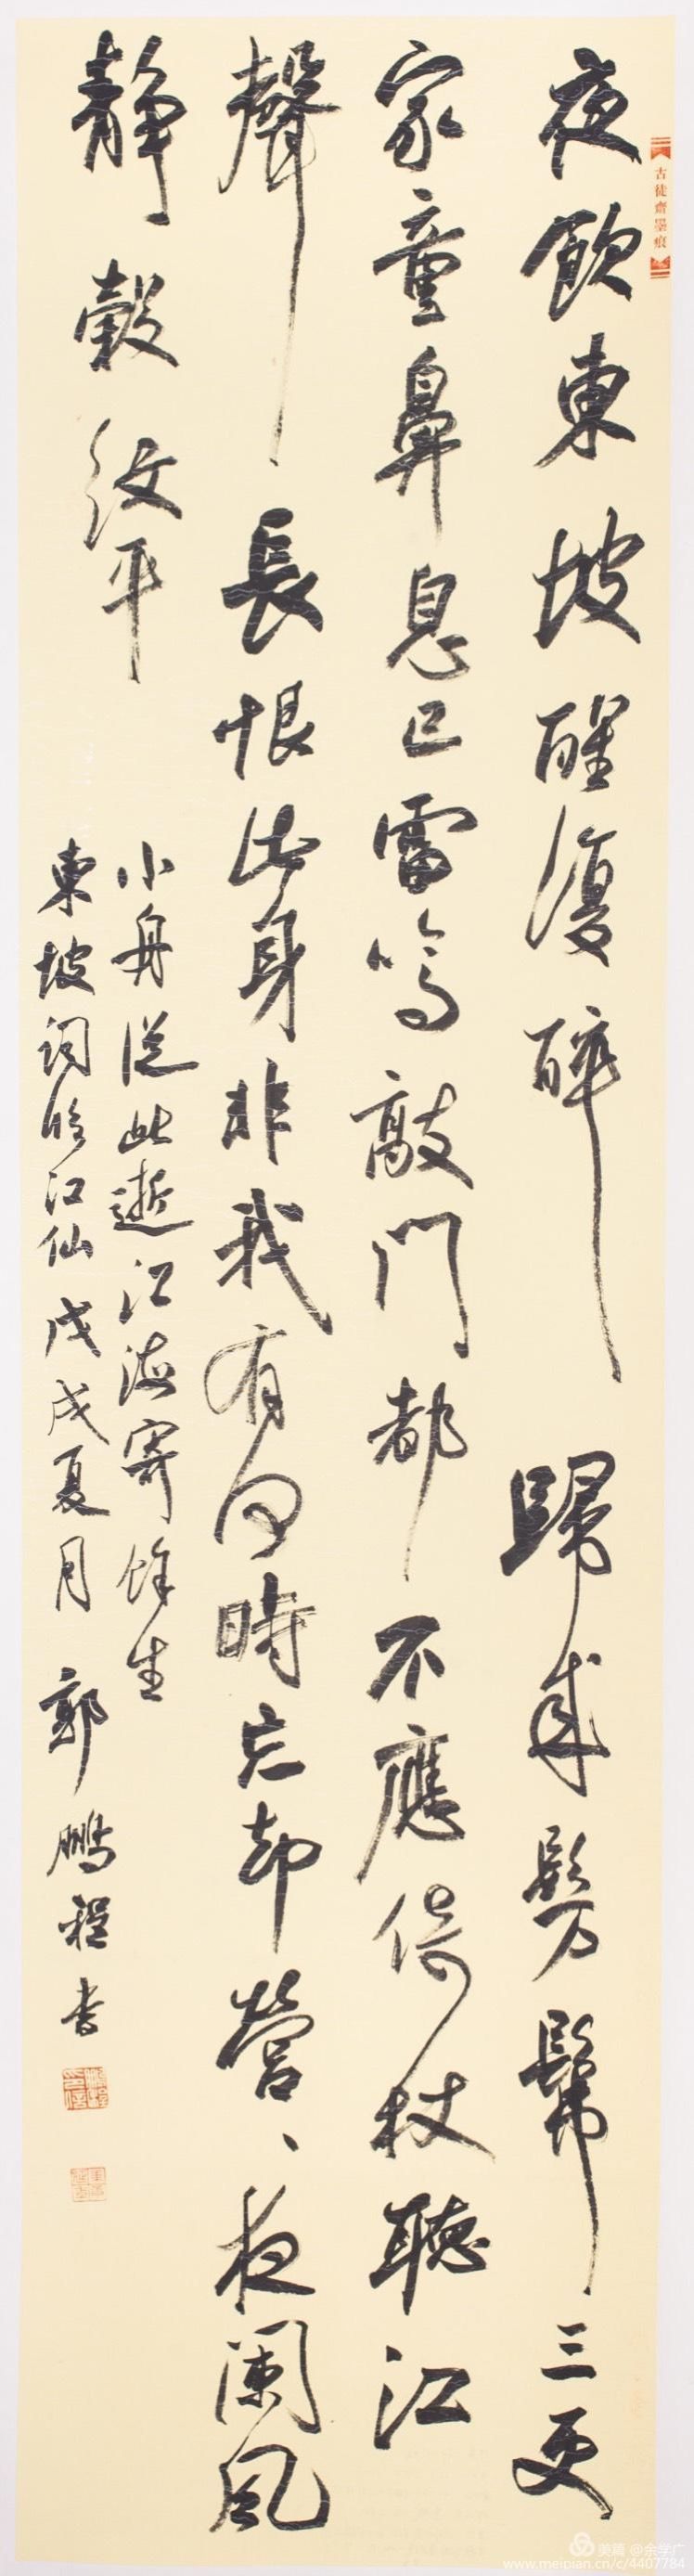 古徒齋墨痕
夜飲東坡醒復醉歸来髣髴三更
家童鼻息已雷鳴敲門都不應倚杖聽江
聲長恨此身非我有何時忘却營、夜闌風
靜縠紋平
小舟從此逝江海寄餘生
東坡詞臨江仙戊戌夏月郭鵬程书
美篇 @余学广
www.meipian.cn/c/4407784